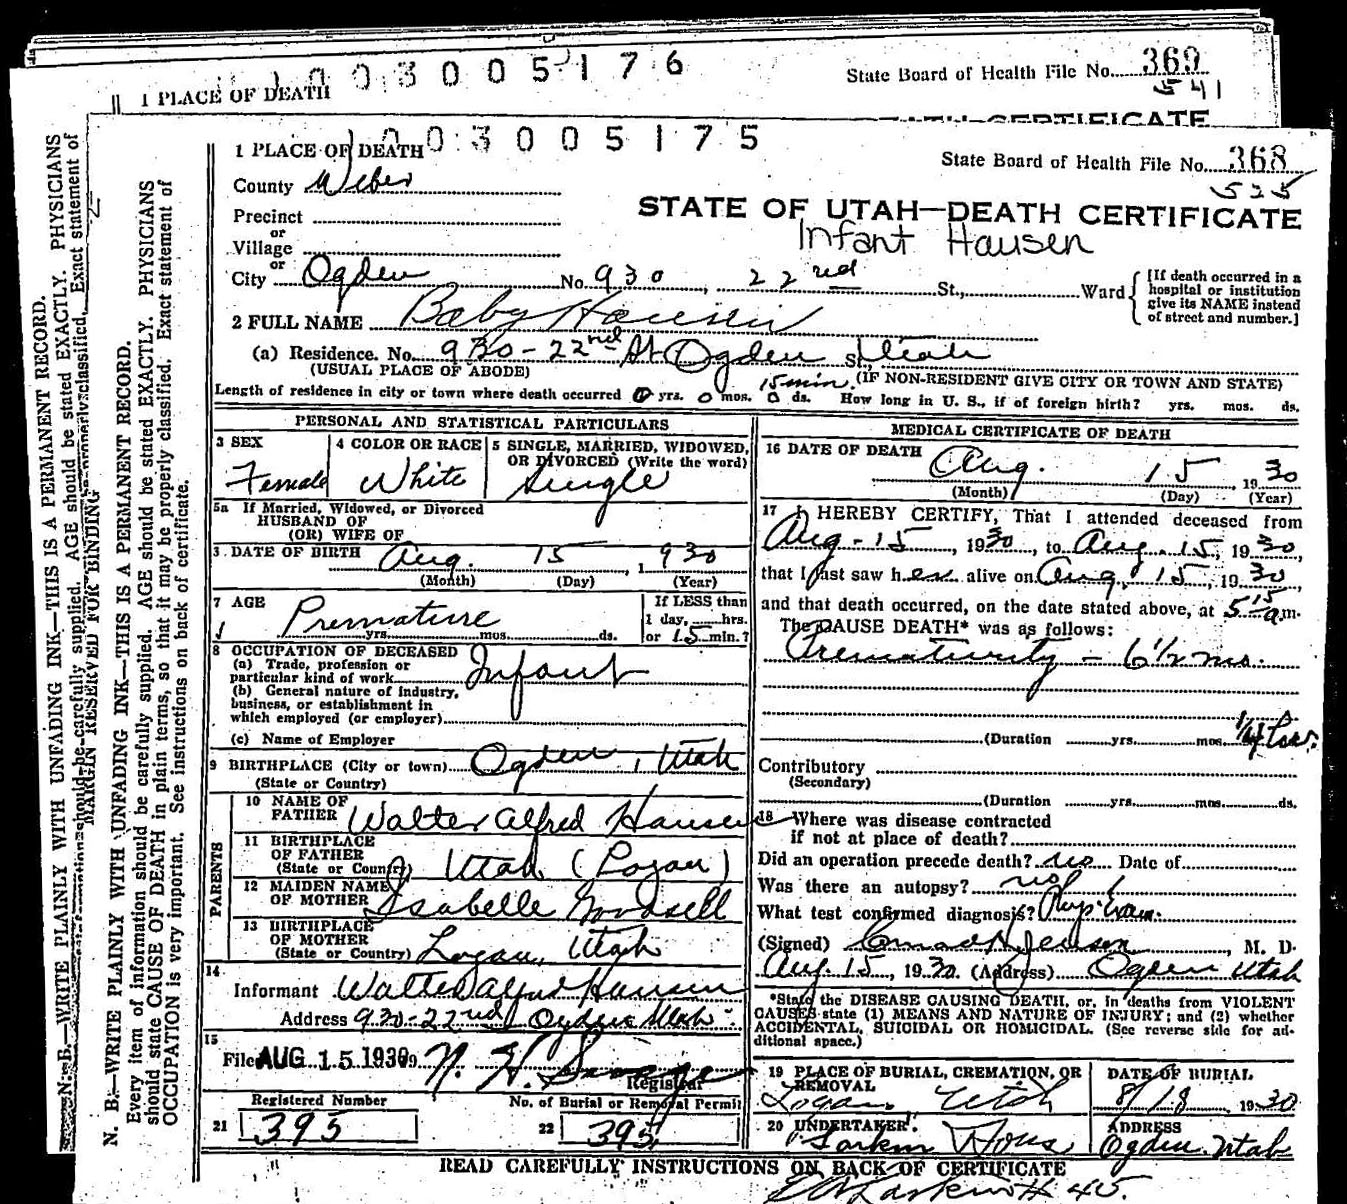 1003005176
State Board of Health File No. 369
541
1 PLACE OF DEATH
CERTIFICATE
1003005175
1 PLACE OF DEATH
State Board of Health File No. 368
525
County Weber
STATE OF UTAH—DEATH CERTIFICATE
Infant Hausen
Precinct
or
Village
or
City Ogden No. 930, 22nd St., Ward
[If death occurred in a hospital or institution give its NAME instead of street and number.]
2 FULL NAME Baby Hausen
(a) Residence. No. 930-22nd St Ogden St., Utah
(USUAL PLACE OF ABODE) (IF NON-RESIDENT GIVE CITY OR TOWN AND STATE)
15 min.
Length of residence in city or town where death occurred 0 yrs. 0 mos. 0 ds. How long in U. S., if of foreign birth? yrs. mos. ds.
PERSONAL AND STATISTICAL PARTICULARS
3 SEX
Female
4 COLOR OR RACE
White
5 SINGLE, MARRIED, WIDOWED,
OR DIVORCED (Write the word)
Single
5a If Married, Widowed, or Divorced
HUSBAND OF
(OR) WIFE OF
DATE OF BIRTH Aug. 15, 1930
(Month) (Day) (Year)
7 AGE
Premature
yrs. mos. ds.
If LESS than
1 day, hrs.
or 15 min.?
8 OCCUPATION OF DECEASED
(a) Trade, profession or
particular kind of work Infant
(b) General nature of industry,
business, or establishment in
which employed (or employer)
(c) Name of Employer
9 BIRTHPLACE (City or town) Ogden, Utah
(State or Country)
PARENTS
10 NAME OF
FATHER Walter Alfred Hausen
11 BIRTHPLACE
OF FATHER
(State or Country) Utah (Logan)
12 MAIDEN NAME
OF MOTHER Isabelle Goodsell
13 BIRTHPLACE
OF MOTHER
(State or Country) Logan, Utah
14
Informant Walter Alfred Hausen
Address 930-22nd Ogden Utah
15
Filed AUG 15 1930 N. H. Savage
Registrar
Registered Number
21 395
No. of Burial or Removal Permit
22 395
MEDICAL CERTIFICATE OF DEATH
16 DATE OF DEATH Aug. 15, 1930
(Month) (Day) (Year)
17 I HEREBY CERTIFY, That I attended deceased from
Aug-15, 1930, to Aug. 15, 1930,
that I last saw her alive on Aug. 15, 1930,
and that death occurred, on the date stated above, at 5 15 a.m.
The CAUSE DEATH* was as follows:
Prematurity - 6 1/2 mo.
(Duration yrs. mos. 1/4 hour.
Contributory
(Secondary)
(Duration yrs. mos. ds.
18 Where was disease contracted
if not at place of death?
Did an operation precede death? no Date of
Was there an autopsy? no
What test confirmed diagnosis? Phys. Exam.
(Signed) Conrad H. Jensen, M. D.
Aug. 15, 1930. (Address) Ogden Utah
*State the DISEASE CAUSING DEATH, or, in deaths from VIOLENT
CAUSES state (1) MEANS AND NATURE OF INJURY; and (2) whether
ACCIDENTAL, SUICIDAL OR HOMICIDAL. (See reverse side for ad-
ditional space.)
19 PLACE OF BURIAL, CREMATION, OR
REMOVAL
Logan, Utah
DATE OF BURIAL
8/18, 1930
20 UNDERTAKER
Larkin & Sons
ADDRESS
Ogden, Utah
READ CAREFULLY INSTRUCTIONS ON BACK OF CERTIFICATE
N. B.—WRITE PLAINLY WITH UNFADING INK—THIS IS A PERMANENT RECORD.
Every item of information should be carefully supplied. AGE should be stated EXACTLY. PHYSICIANS
should state CAUSE OF DEATH in plain terms, so that it may be properly classified. Exact statement of
OCCUPATION is very important. See instructions on back of certificate.
N. B.—WRITE PLAINLY WITH UNFADING INK—THIS IS A PERMANENT RECORD.
MARGIN RESERVED FOR BINDING